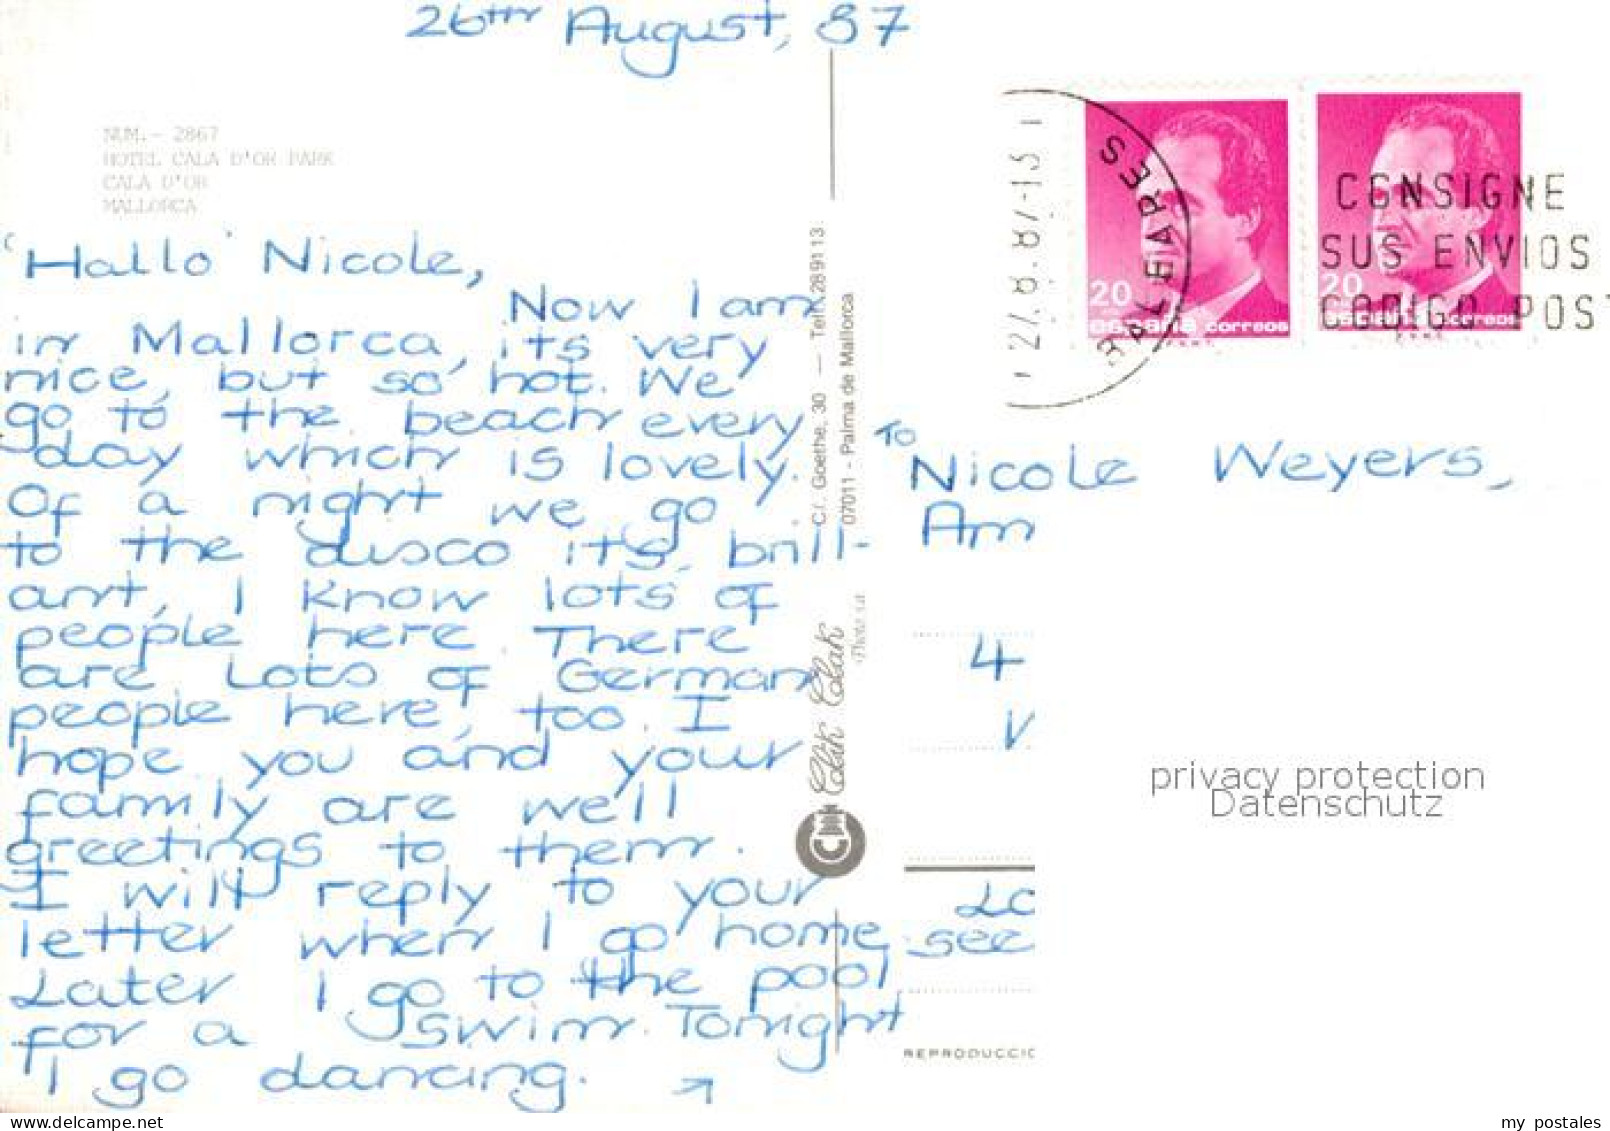 26th August, 87
NUM.- 2867
HOTEL CALA D'OR PARK
CALA D'OR
MALLORCA
'Hallo' Nicole,
Now I am
in Mallorca, its very
nice, but so hot. We
go to the beach every
day which is lovely.
Of a night we go
to the disco its brill-
ant, I know lots of
people here. There
are lots of German
people here, too. I
hope you and your
family are well
greetings to them.
I will reply to your
letter when I go home,
Later I go to the pool
for a swim. Tonight
I go dancing.
C/. Goethe, 30 — Telf. 289113
07011 - Palma de Mallorca
Clik Clak
BALEARES
27.8.87-13
20
españa correos
F.N.M.T.
20
españa correos
F.N.M.T.
CONSIGNE
SUS ENVIOS
CODIGO POST
To
Nicole Weyers,
Am
4
privacy protection
Datenschutz
see
REPRODUCCIO
my postales